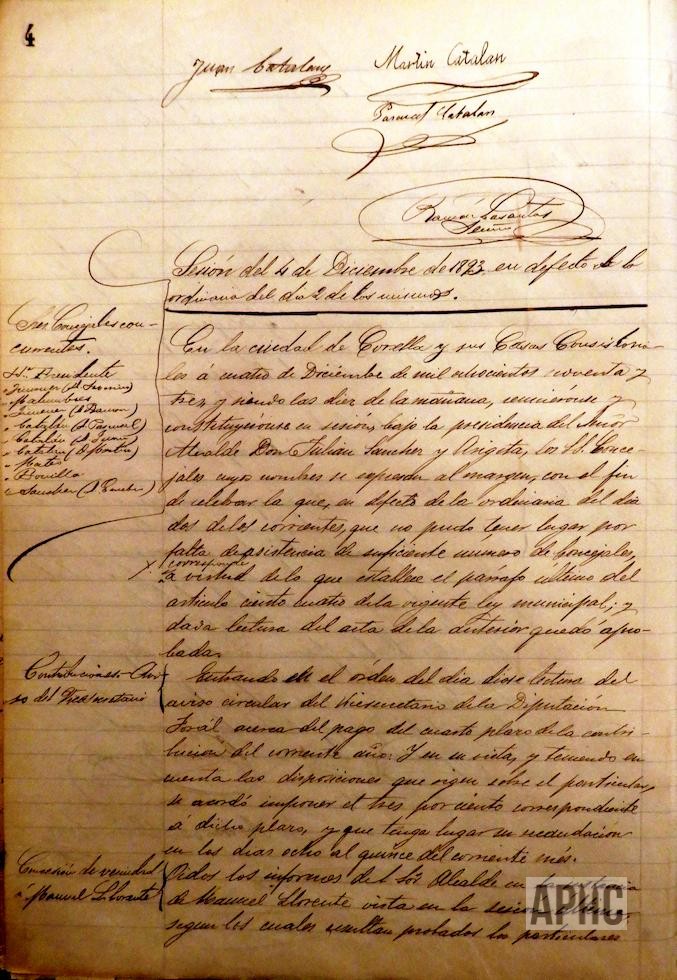 4
Juan Catalan Martin Catalan
Pascual Catalan
Ramón Lasantas
Sesión del 4 de Diciembre de 1893 en defecto de la
ordinaria del dia 2 de los mismos.
Sres. Concejales con-
currentes.
Sr. Presidente
Jimenez (D. Fermin)
Malumbres
Jimenez (D. Ramon)
Catalán (D. Pascual)
Catalán (D. Juan)
Catalán (D. Martin)
Mateo
Bonilla
Sanchez
En la ciudad de Corella y sus Casas Consistoria-
les á cuatro de Diciembre de mil ochocientos noventa y
tres, y siendo las diez de la mañana, reunieronse y
constituyéronse en sesión, bajo la presidencia del Señor
Alcalde Don Julian Sanchez y Argota, los SS. Conce-
jales cuyos nombres se espresan al margen, con el fin
de celebrar la que, en defecto de la ordinaria del dia
dos de los corrientes, que no pudo tener lugar por
falta de asistencia de suficiente numero de Concejales,
corresponde
á virtud de lo que establece el parrafo último del
articulo ciento cuatro de la vigente ley municipal; y
dada lectura del acta de la anterior quedó apro-
bada.
Contribuciones. Avi-
so del Vicesecretario
Entrando en el órden del dia diose lectura del
aviso circular del Vicesecretario de la Diputación
Foral acerca del pago del cuarto plazo de la contri-
bución del corriente año: Y en su vista, y teniendo en
cuenta las disposiciones que rigen sobre el particular,
se acordó imponer el tres por ciento correspondiente
á dicho plazo, y que tenga lugar su recaudación
en los dias ocho al quince del corriente mes.
Concesión de vecindad
á Manuel Llorente
Oidos los informes del Sor Alcalde en la instancia
de Manuel Llorente vista en la sesión
segun los cuales resultan probados los particulares
APHC